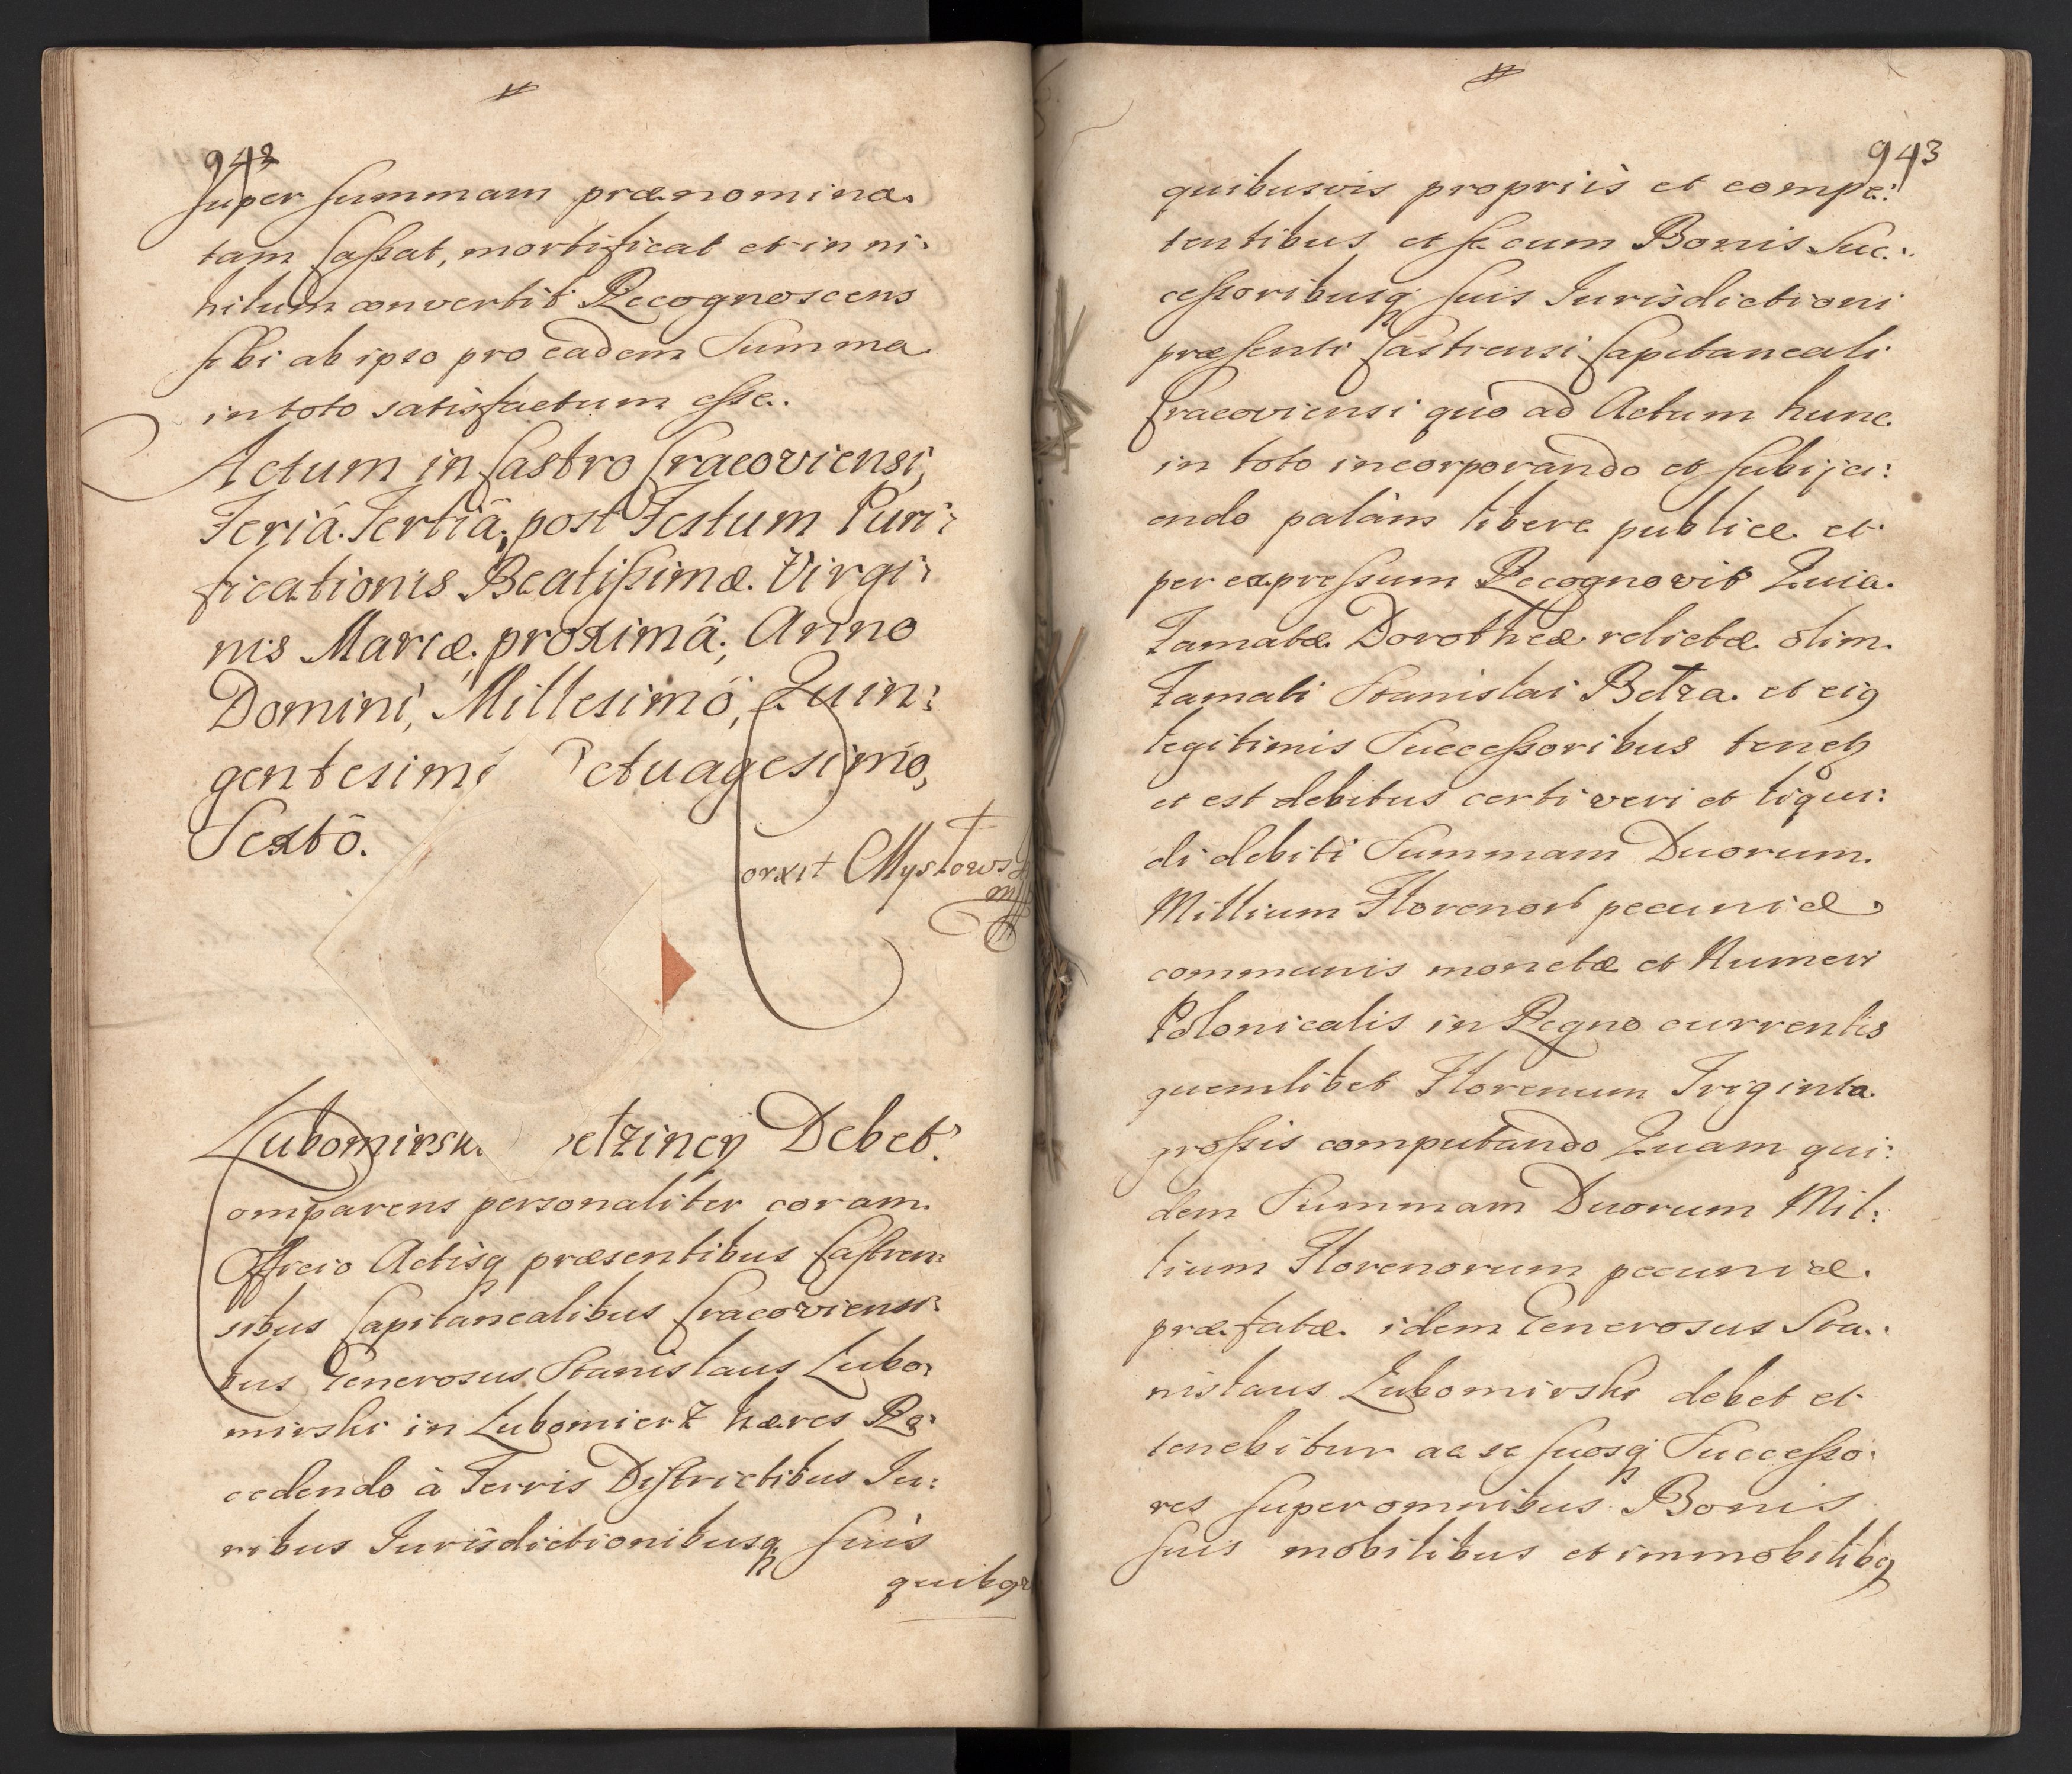 942
super summam prænomina.
tam Cassat, mortificat et in ni:
hilum convertit Recognoscens
sibi ab ipso pro eadem Summa
in toto satisfactum esse.
Actum in Castro Cracoviensi,
Feriâ Tertiâ; post Festum Puri:
ficationis Beatissimæ Virgi:
nis Mariæ proximâ; Anno
Domini, Millesimô, Quin:
gentesimô ctuagesimô,
Sextô.
Corxit Mysłows
Lubomirski etziney Debet.
Comparens personaliter coram
Officio Actisq præsentibus Castren:
sibus Capitanealibus Cracoviensi:
bus Generosus Stanislaus Lubo:
mirski in Lubomierz hæres Re:
cedendo à Terris Districtibus Ju:
ribus Jurisdictionibusq suis
943
quibusvis propriis et compe:
tentibus et se cum Bonis Suc:
cessoribusq suis Jurisdictioni
præsenti Castrensi Capitaneali
Cracoviensi quo ad Actum hunc
in toto incorporando et subijci:
endo palàm libere publice et
per expressum Recognovit Quia
Famatæ Dorotheæ relictæ olim
Famati Stanislai Betza et eig
legitimis Successoribus tenetz
et est debitus certi veri et liqui:
di debiti Summam Duorum
Millium Florenor pecuniæ
communis monetæ et Numeri
Polonicalis in Regno currentis
quemlibet Florenum Triginta
grossis computando Quam qui:
dem Summam Duorum Mil:
lium Florenorum pecuniæ
præfatæ idem Generosus Sta:
nislaus Lubomirski debet et
tenebitur ac se suosq Successo:
res super omnibus Bonis
suis mobilibus et immobilibq